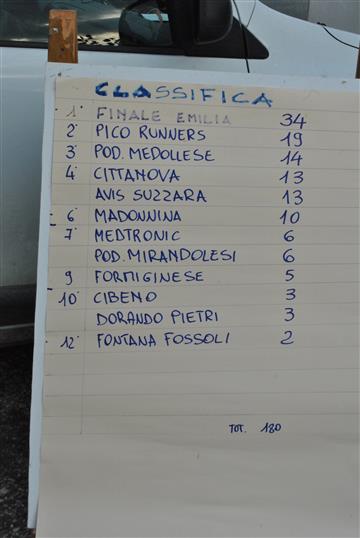 CLASSIFICA
1° FINALE EMILIA 34
2° PICO RUNNERS 19
3° POD. MEDOLLESE 14
4° CITTANOVA 13
AVIS SUZZARA 13
6° MADONNINA 10
7° MEDTRONIC 6
POD. MIRANDOLESI 6
9° FORMIGINESE 5
10° CIBENO 3
DORANDO PIETRI 3
12° FONTANA FOSSOLI 2
TOT. 180